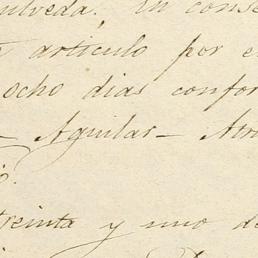 ulveda. En conse
articulo por e
ocho dias confor
- Aguilar - Atro
o.
treinta y uno de